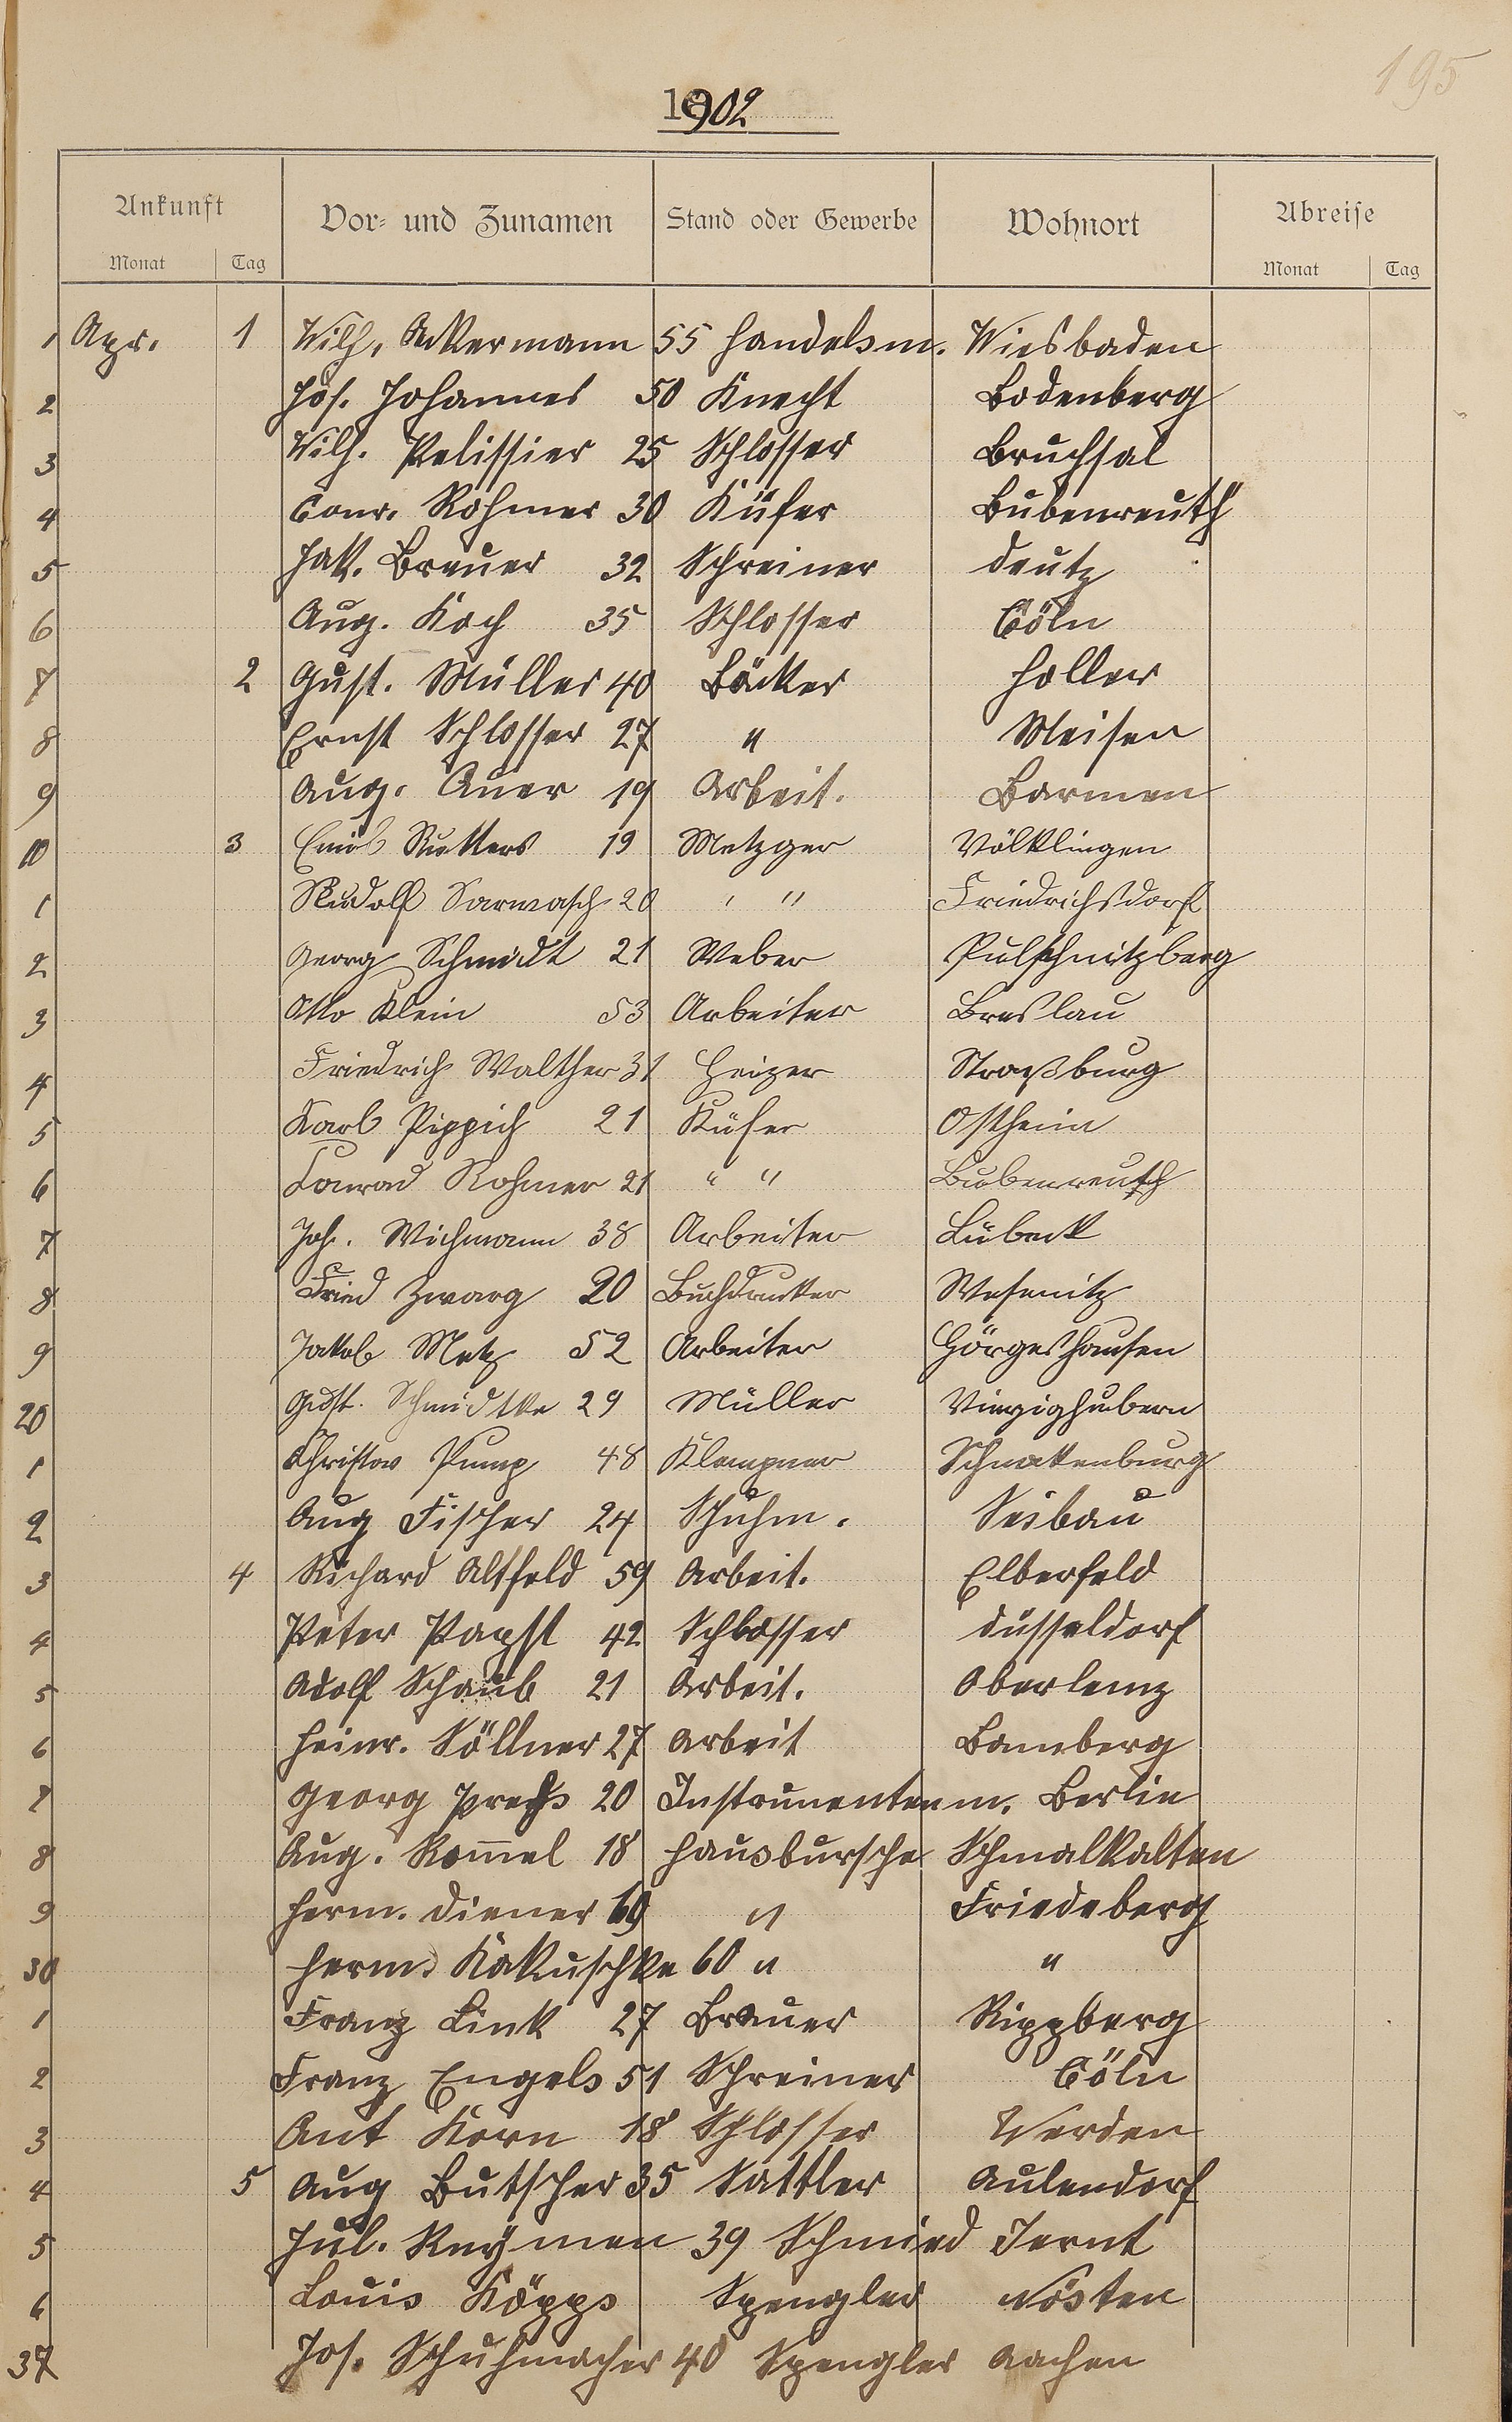 195
1902
Ankunft Vor- und Zunamen Stand oder Gewerbe Wohnort Abreise
Monat Tag Monat Tag
1 Apr. 1 Wilh. Ackermann 55 Handelsm. Wiesbaden
2 Jos. Johannes 50 Knecht Bodenberg
3 Wilh. Pelissier 25 Schlosser Bruchsal
4 Conr. Rohmer 30 Küfer Bubenreuth
5 Jak. Breuer 32 Schreiner Deutz
6 Aug. Koch 35 Schlosser Cöln
7 2 Gust. Müller 40 Bäcker Holler
8 Ernst Schlosser 27 " Meisen
9 Aug. Auer 19 Arbeit. Barmen
10 3 Emil Rutters 19 Metzger Völklingen
1 Rudolf Sarmasch 20 " " Friedrichsdorf
2 Georg Schmidt 21 Weber Pulschnitzberg
3 Otto Klein 53 Arbeiter Breslau
4 Friedrich Walther 31 Heizer Straßburg
5 Karl Pippich 21 Küfer Ostheim
6 Conrad Rohmer 21 " " Bubenreuth
7 Joh. Wichmann 38 Arbeiter Lübeck
8 Fried Zwarg 20 Buchdrucker Wesenitz
9 Jakob Metz 52 Arbeiter Görgeshausen
20 Gust. Schmidtke 29 Müller Vierzighubern
1 Christow Pump 48 Klempner Schnakenburg
2 Aug Fischer 24 Schuhm. Seibau
3 4 Richard Altfeld 59 Arbeit. Elberfeld
4 Peter Papst 42 Schlosser Düsseldorf
5 Adolf Schaub 21 Arbeit. Oberlemp
6 Heinr. Söllner 27 Arbeit Bamberg
7 Georg 20 Instrumentenm. Berlin
8 Aug. Rom̅el 18 Hausbursche Schmalkalten
9 Herm. Diener 69 " Friedeberg
30 Herm. Kakuschke 60 " "
1 Franz Link 27 Brauer Rippberg
2 Franz Engels 51 Schreiner Cöln
3 Ant Korn 18 Schlosser Werden
4 5 Aug Butscher 35 Sattler Aulendorf
5 Jul. Reymen 39 Schmied
6 Louis Köpps Spengler
37 Jos. Schuhmacher 40 Spengler Aachen